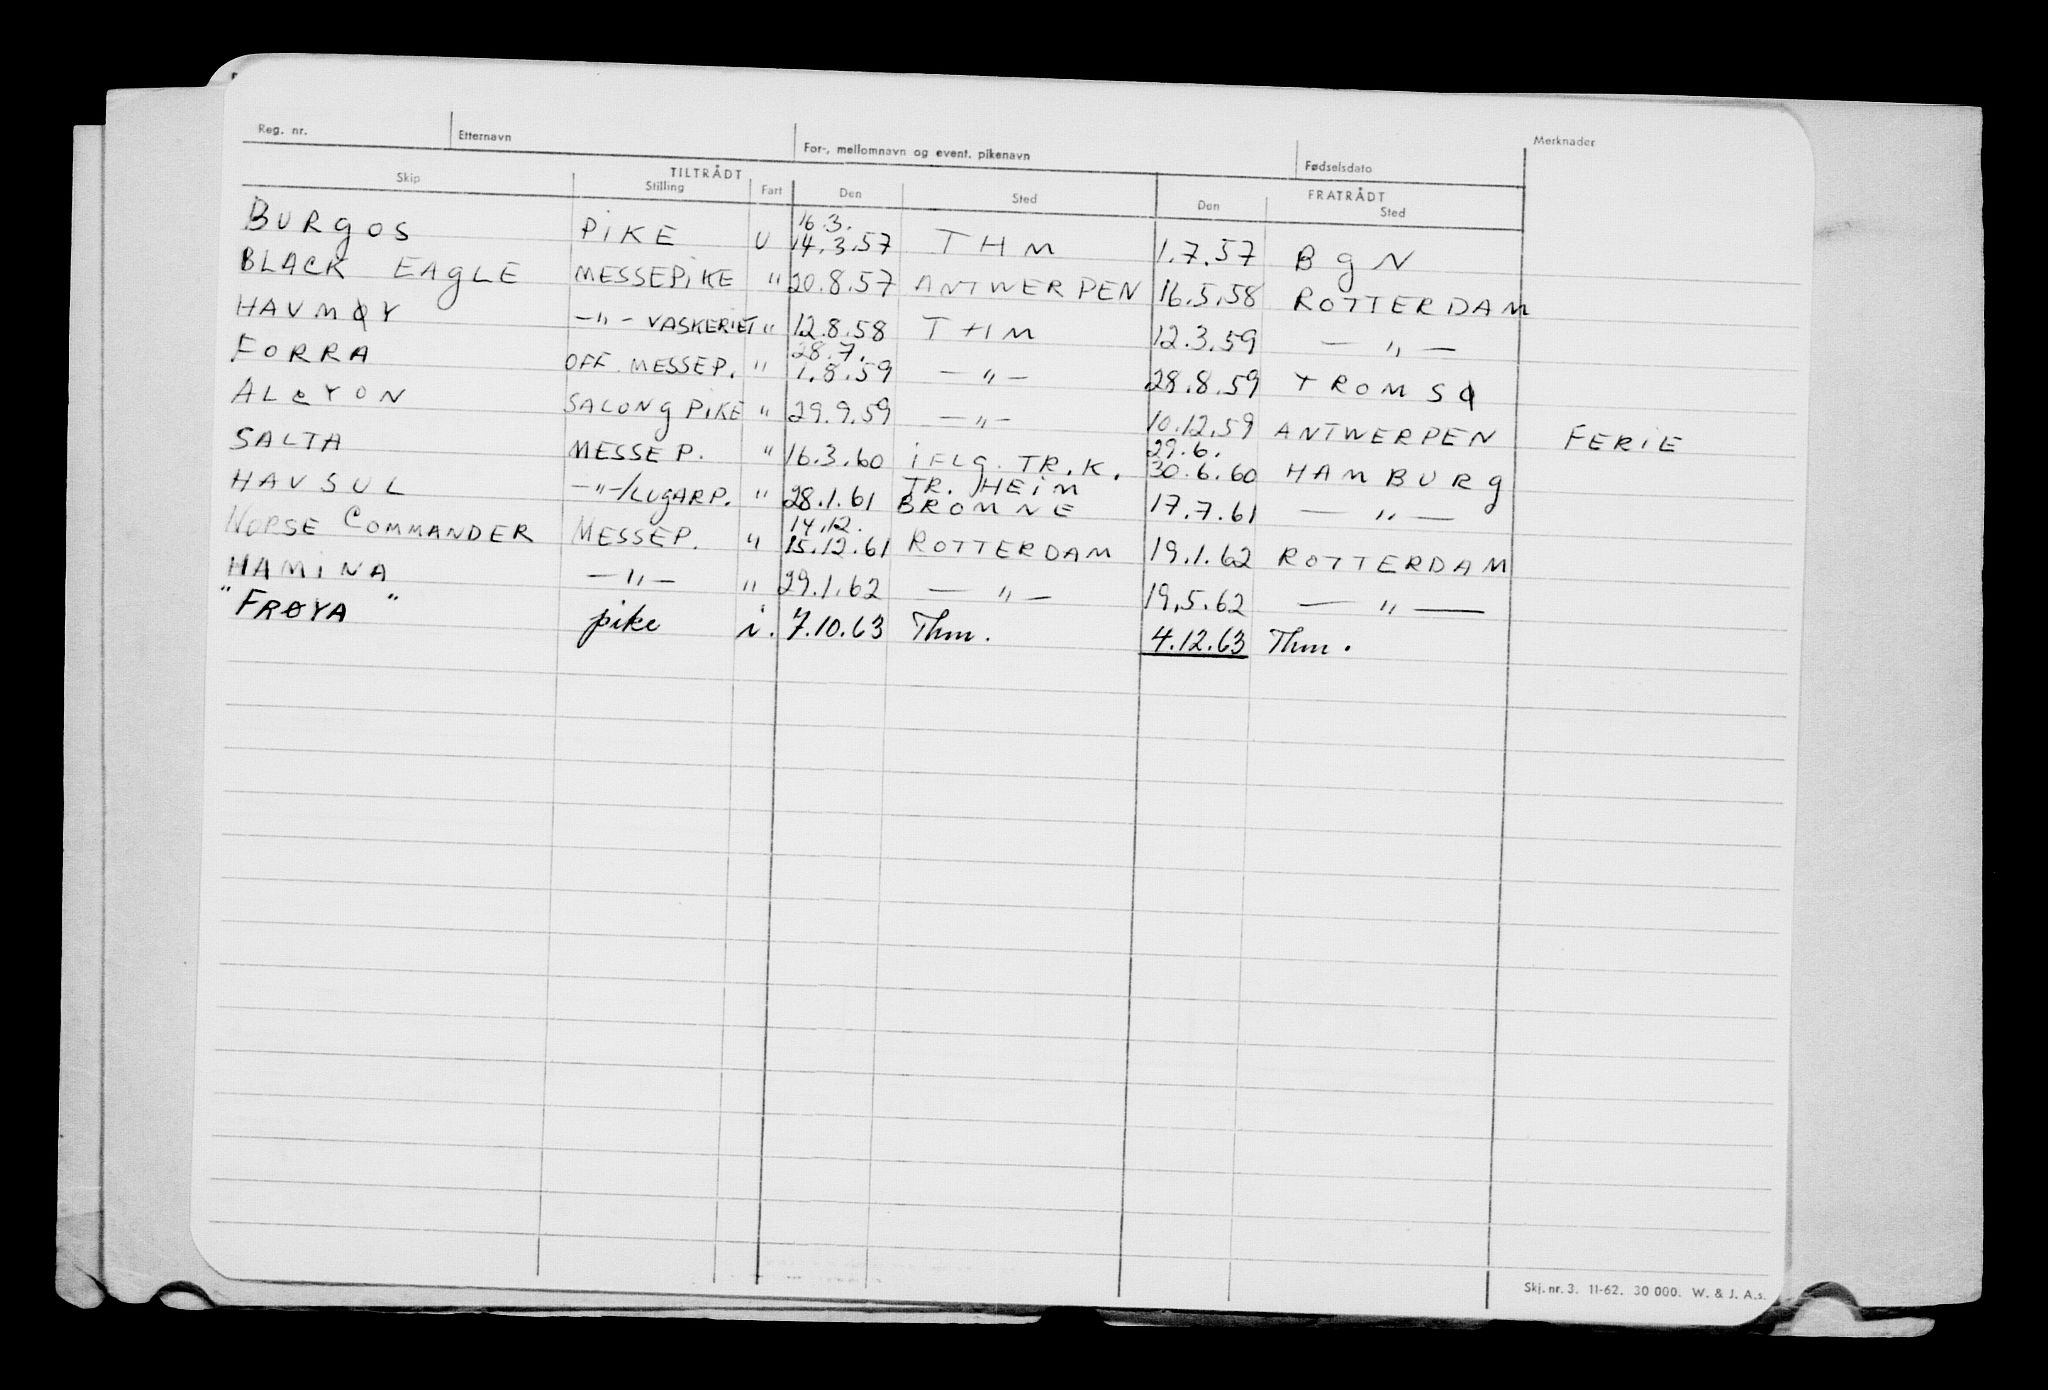 Reg. nr. Etternavn For-, mellomnavn og event. pikenavn Fødselsdato Merknader
TILTRÅDT FRATRÅDT
Skip Stilling Fart Den Sted Den Sted
16.3.
BURGOS PIKE U 14.3.57 THM 1.7.57 BGN
BLACK EAGLE MESSEPIKE " 20.8.57 ANTWERPEN 16.5.58 ROTTERDAM
HAVMØY —"— VASKERIET " 12.8.58 THM 12.3.59 —"—
28.7.
FORRA OFF. MESSEP. " 1.8.59 —"— 28.8.59 TROMSØ
ALCYON SALONGPIKE " 29.9.59 —"— 10.12.59 ANTWERPEN FERIE
29.6.
SALTA MESSEP. " 16.3.60 IFLG. TR.K. 30.6.60 HAMBURG
TR.HEIM
HAVSUL —"—/LUGARP. " 28.1.61 BROMNE 17.7.61 —"—
14.12.
NORSE COMMANDER MESSEP. " 15.12.61 ROTTERDAM 19.1.62 ROTTERDAM
HAMINA —"— " 29.1.62 —"— 19.5.62 —"—
"FRØYA" pike i. 7.10.63 Thm. 4.12.63 Thm.
Skj. nr. 3. 11-62. 30 000. W. & J. A.s.